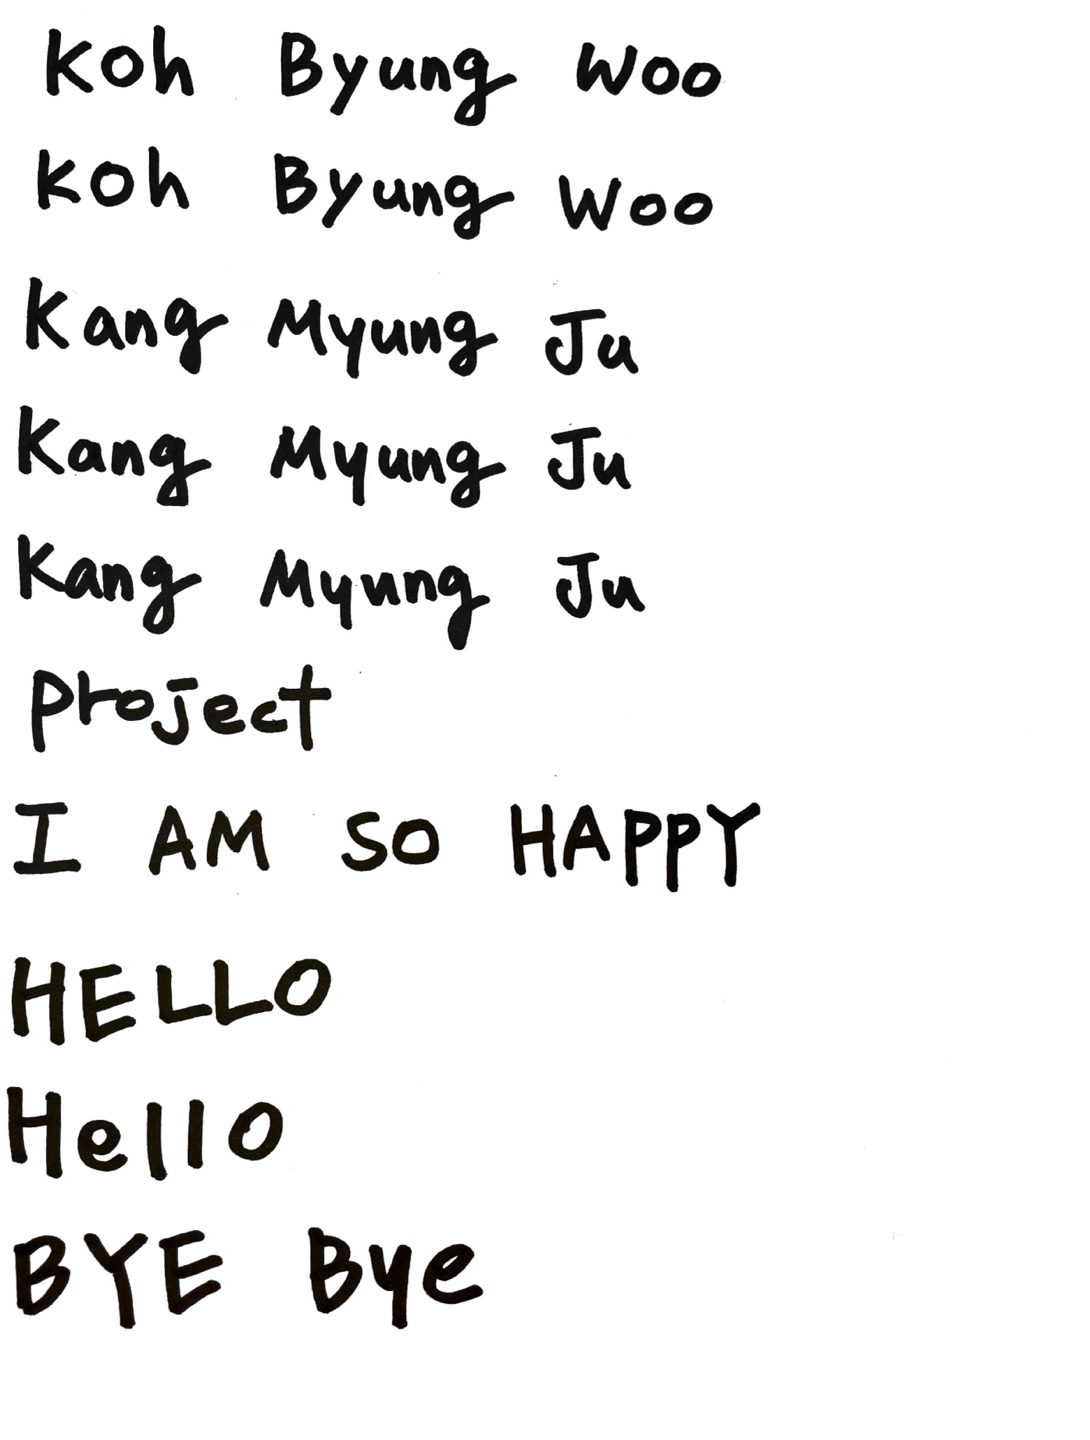 Koh Byung Woo
Koh Byung Woo
Kang Myung Ju
Kang Myung Ju
Kang Myung Ju
project
I AM SO HAPPY
HELLO
Hello
BYE Bye